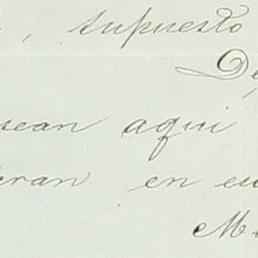 , supuesto
De
sean aqui
eran en cu
Ma